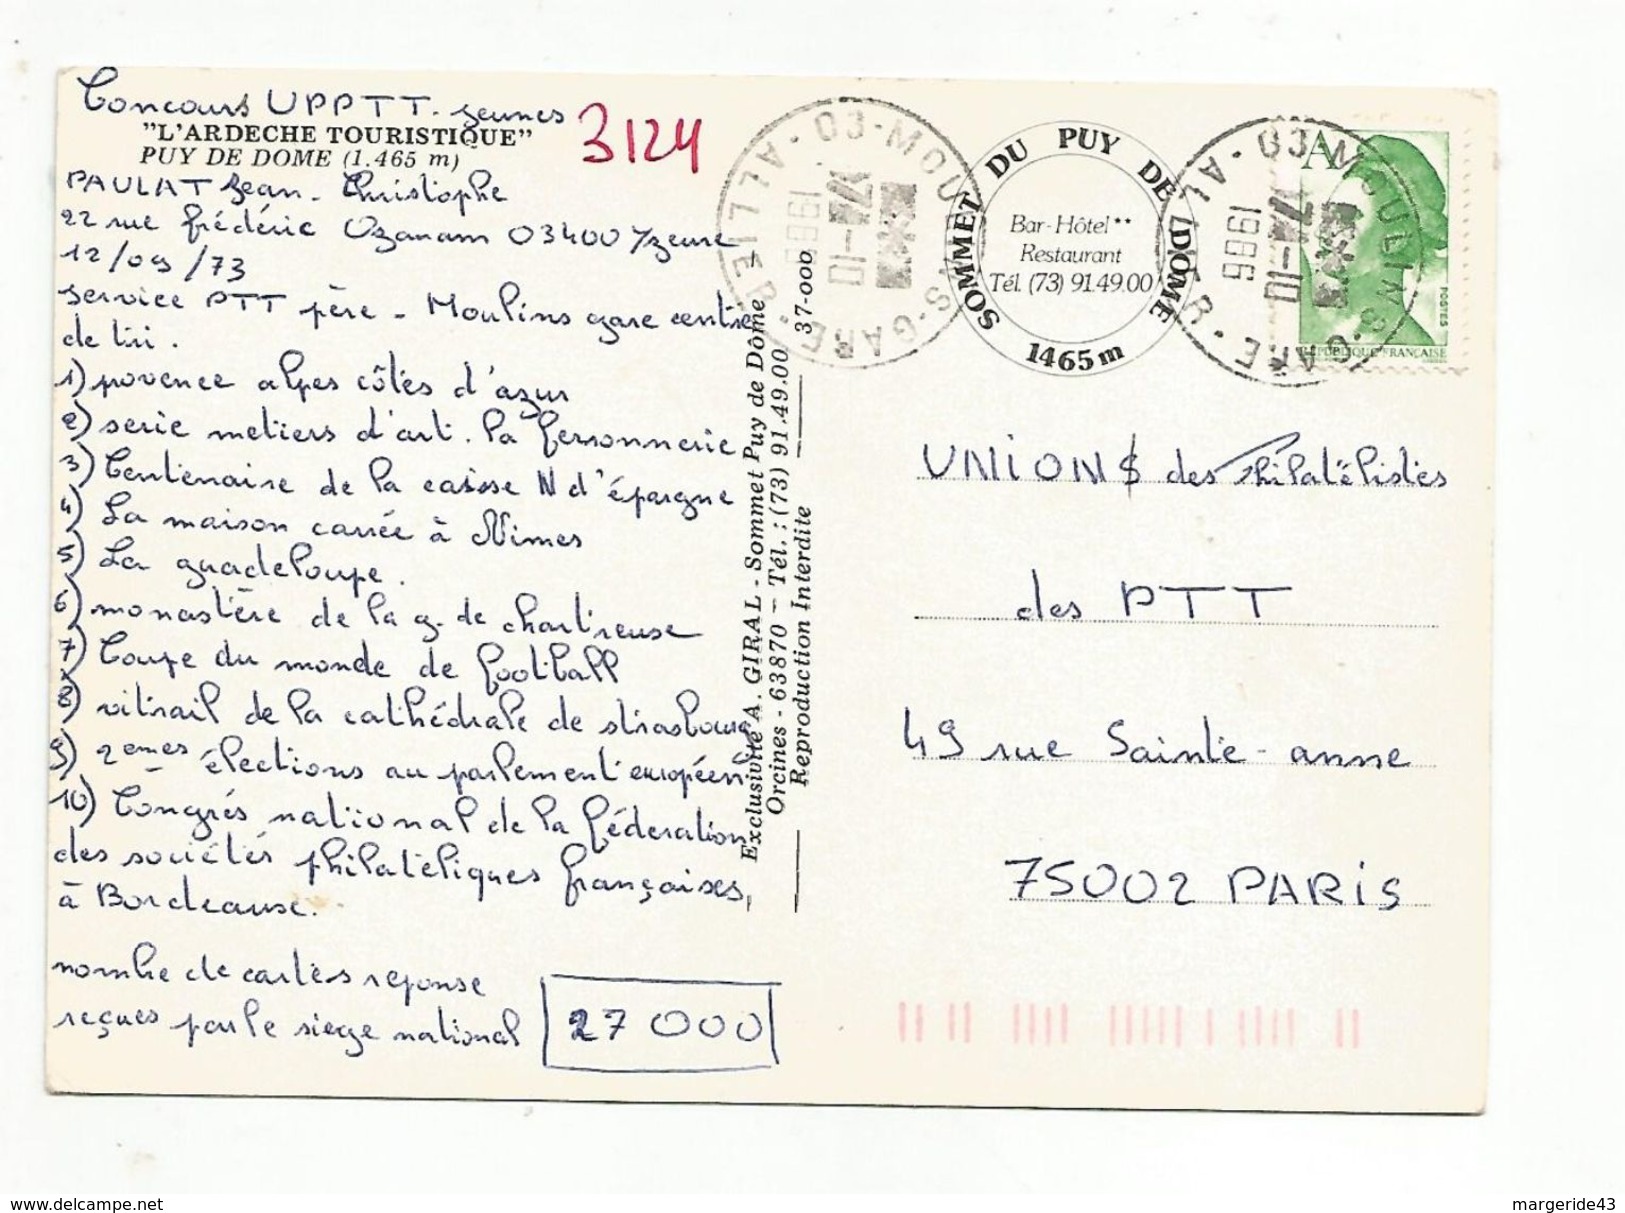 Concours UPPTT. jeunes
"L'ARDECHE TOURISTIQUE"
PUY DE DOME (1.465 m)
3124
PAULAT Jean-Christophe
22 rue frédéric Ozanam 03400 Yzeure
12/09/73
service PTT père - Moulins gare centre
de tri.
1) provence alpes côtés d'azur
2) serie metiers d'art. la ferronnerie
3) Centenaire de la caisse N d'épargne
4) La maison carrée à Nimes
5) La guadeloupe.
6) monastère de la g. de chartreuse
7) Coupe du monde de football
8) vitrail de la cathédrale de strasbourg
9) 2emes élections au parlement européen
10) Congrés national de la féderation
des sociétés philatéliques françaises,
à Bordeaux.
nombre de cartes reponse
reçues par le siege national
27 000
Exclusivité A. GIRAL - Sommet Puy de Dôme
Orcines - 63870 - Tél. : (73) 91.49.00
Reproduction Interdite
37-000
03-MOULINS-GARE-
ALLIER
17-10
1986
SOMMET DU PUY DE DOME
1465 m
Bar-Hôtel**
Restaurant
Tél. (73) 91.49.00
03-MOULINS-GARE-
ALLIER
17-10
1986
A
POSTES
REPUBLIQUE FRANÇAISE
UNIONS des Philatélistes
des PTT
49 rue Sainte-anne
75002 PARIS
www.delcampe.net
margeride43